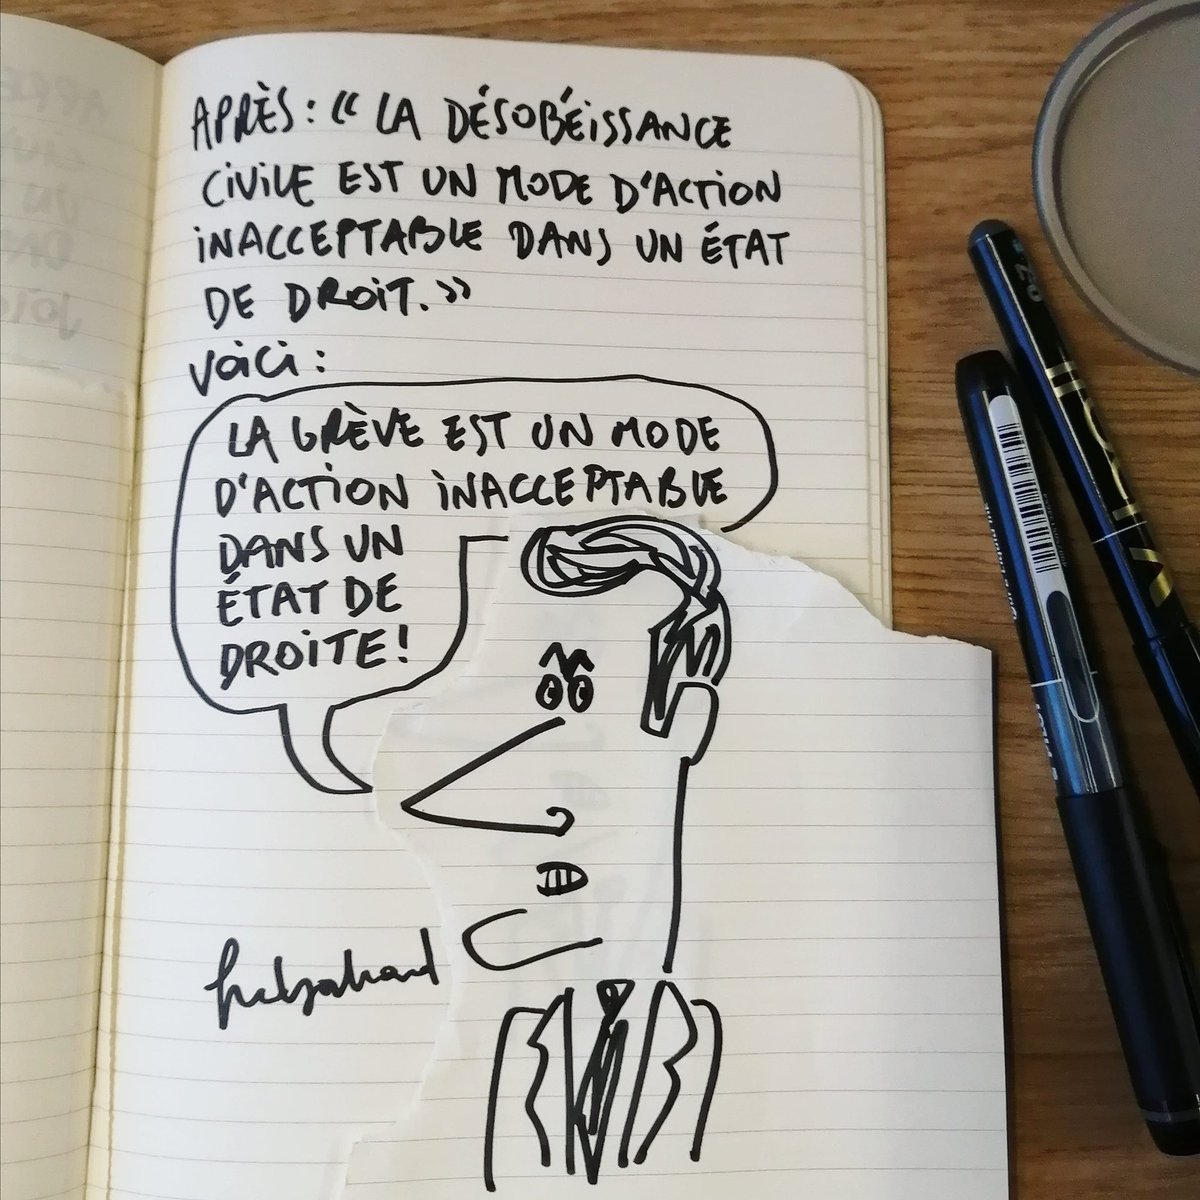 APRÈS : « LA DÉSOBÉISSANCE
CIVILE EST UN MODE D'ACTION
INACCEPTABLE DANS UN ÉTAT
DE DROIT. »
VOICI :
LA GRÈVE EST UN MODE
D'ACTION INACCEPTABLE
DANS UN
ÉTAT DE
DROITE !